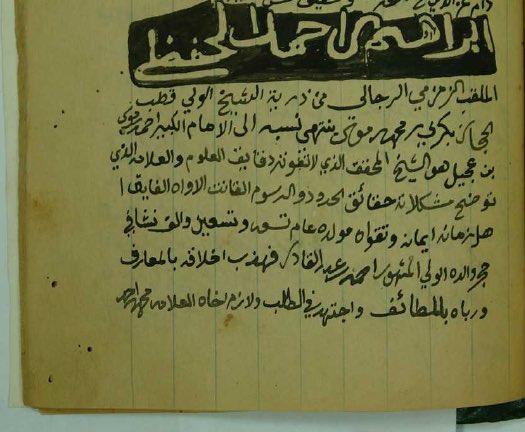 ابراهيم بن احمد الحفظي
الملقب الزمزمي الرجالي من ذرية الشيخ الولي قطب
الحجاز بكري بن محمد بن موسى ينتهي نسبه الى الامام الكبير احمد بن موسى
بن عجيل هو الشيخ المحقق الذي لا تفوته دقايق العلوم والعلامة الذي
توضح مشكلاته حقائق الحدود والرسوم القانت الاواه الفايق ا
هل زمانه ايمانه وتقواه مولده عام تسعه وتسعين والف نشا في
حجر والده الولي المشهور احمد بن عبدالقادر فهذب اخلاقه بالمعارف
ورباه باللطائف واجتهد في الطلب ولازم اخاه العلامه محمد بن احمد